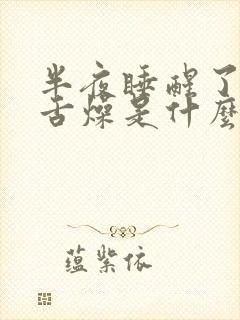 半夜睡醒了
舌燥是什麼
蕴紫依